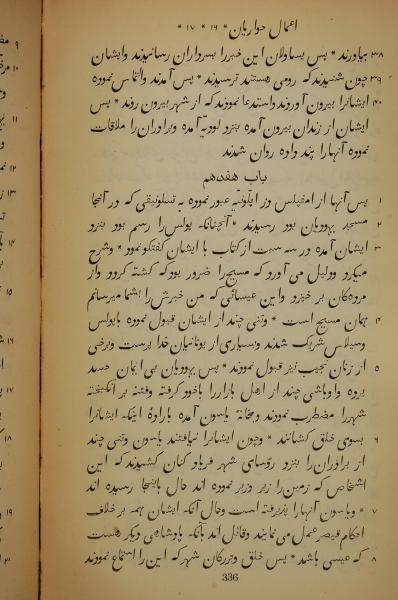 اعمال حواریان * ۱۶ * ۱۷ *
۳۸ بیاورند * پس یساولان این خبررا بسرداران رسانیدند وایشان
۳۹ چون شنیدند که رومی هستند ترسیدند * پس آمدند والتماس نموده
۴۰ ایشانرا بیرون آوردند واستدعا نمودند که از شهر بیرون روند * پس
ایشان از زندان بیرون آمده بنزد لودیه آمده وبرادران را ملاقات
نموده آنها را پند داده روان شدند
باب هفدهم
۱ پس آنها از امفیلس وز اپلونیه عبور نموده به تسلونیقی که در آنجا
۲ مسجد یهودیان بود رسیدند * آنچنانکه پولس را رسم بود بنزد
۳ ایشان آمده در سه سبت از کتاب با ایشان گفتگو نمود * وشرح
میکرد ودلیل می آورد که مسیح را ضرور بود که کشته گردد واز
مردگان بر خیزد واین عیسائی که من خبرش را بشما میرسانم
۴ همان مسیح است * وتنی چند از ایشان قبول نموده باپولس
وسیلاس شریک شدند وبسیاری از یونانیان خدا پرست وبرخی
۵ از زنان نجیب نیز قبول نمودند * پس یهودیان بی ایمان حسد
برده واوباشی چند از اهل بازار را باخود گرفته وفتنه بر انگیخته
شهر را مضطرب نمودند وبخانهٔ یاسون آمده بارادهٔ اینکه ایشانرا
۶ بسوی خلق کشانند * وچون ایشانرا نیافتند یاسون وتنی چند
از برادران را بنزد رؤسای شهر فریاد کنان کشیدند که این
اشخاص که زمین را زیر وزبر نموده اند حال باینجا رسیده اند
۷ * ویاسون آنها را پذیرفته است وحال آنکه ایشان همه بر خلاف
احکام قیصر عمل می نمایند وقائل اند بآنکه پادشاهی دیگر هست
۸ که عیسی باشد * پس خلق وبزرگان شهر که این را استماع نمودند
336